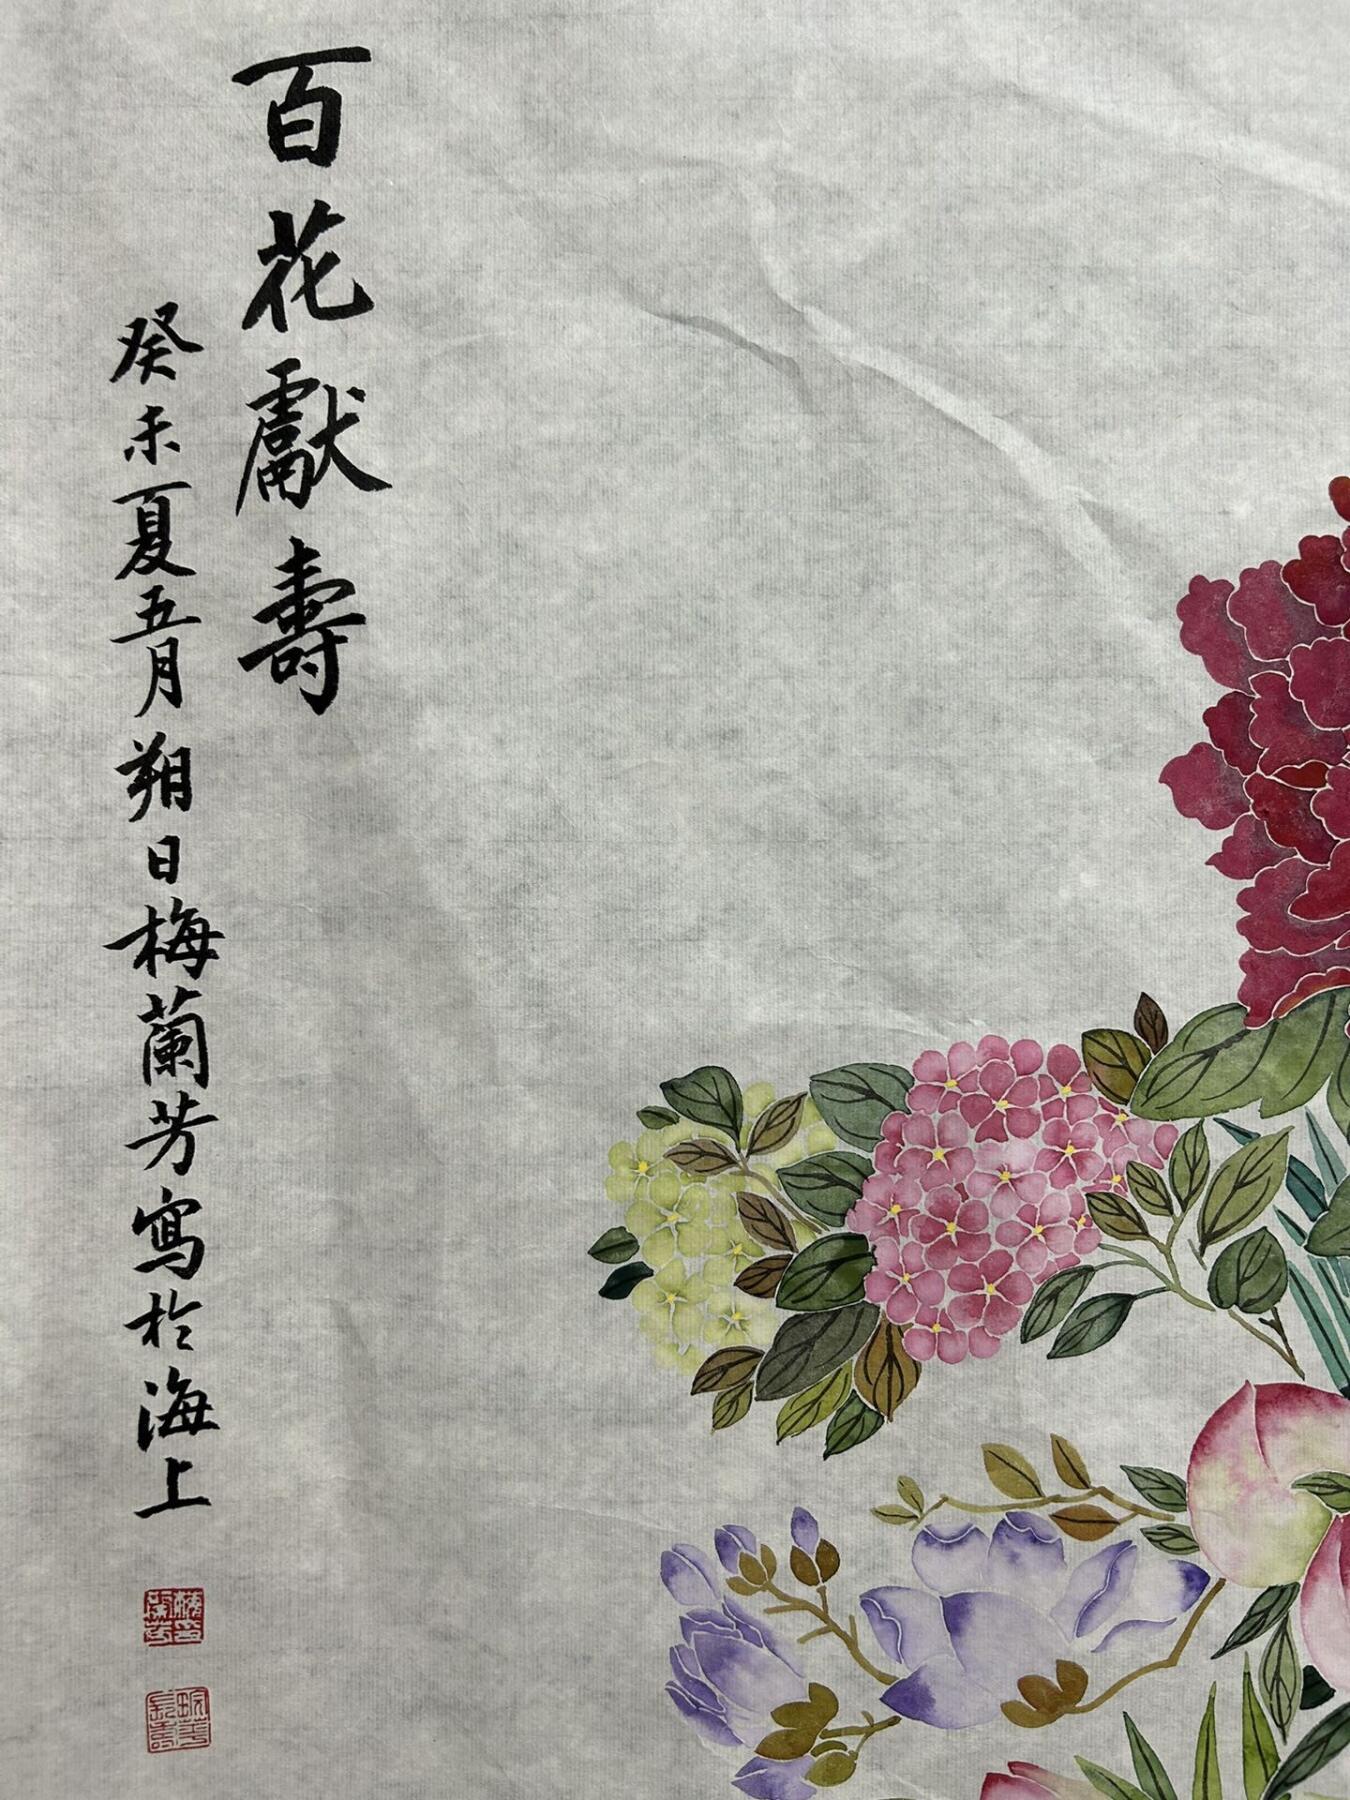 百花獻壽
癸未夏五月朔日梅蘭芳寫於海上